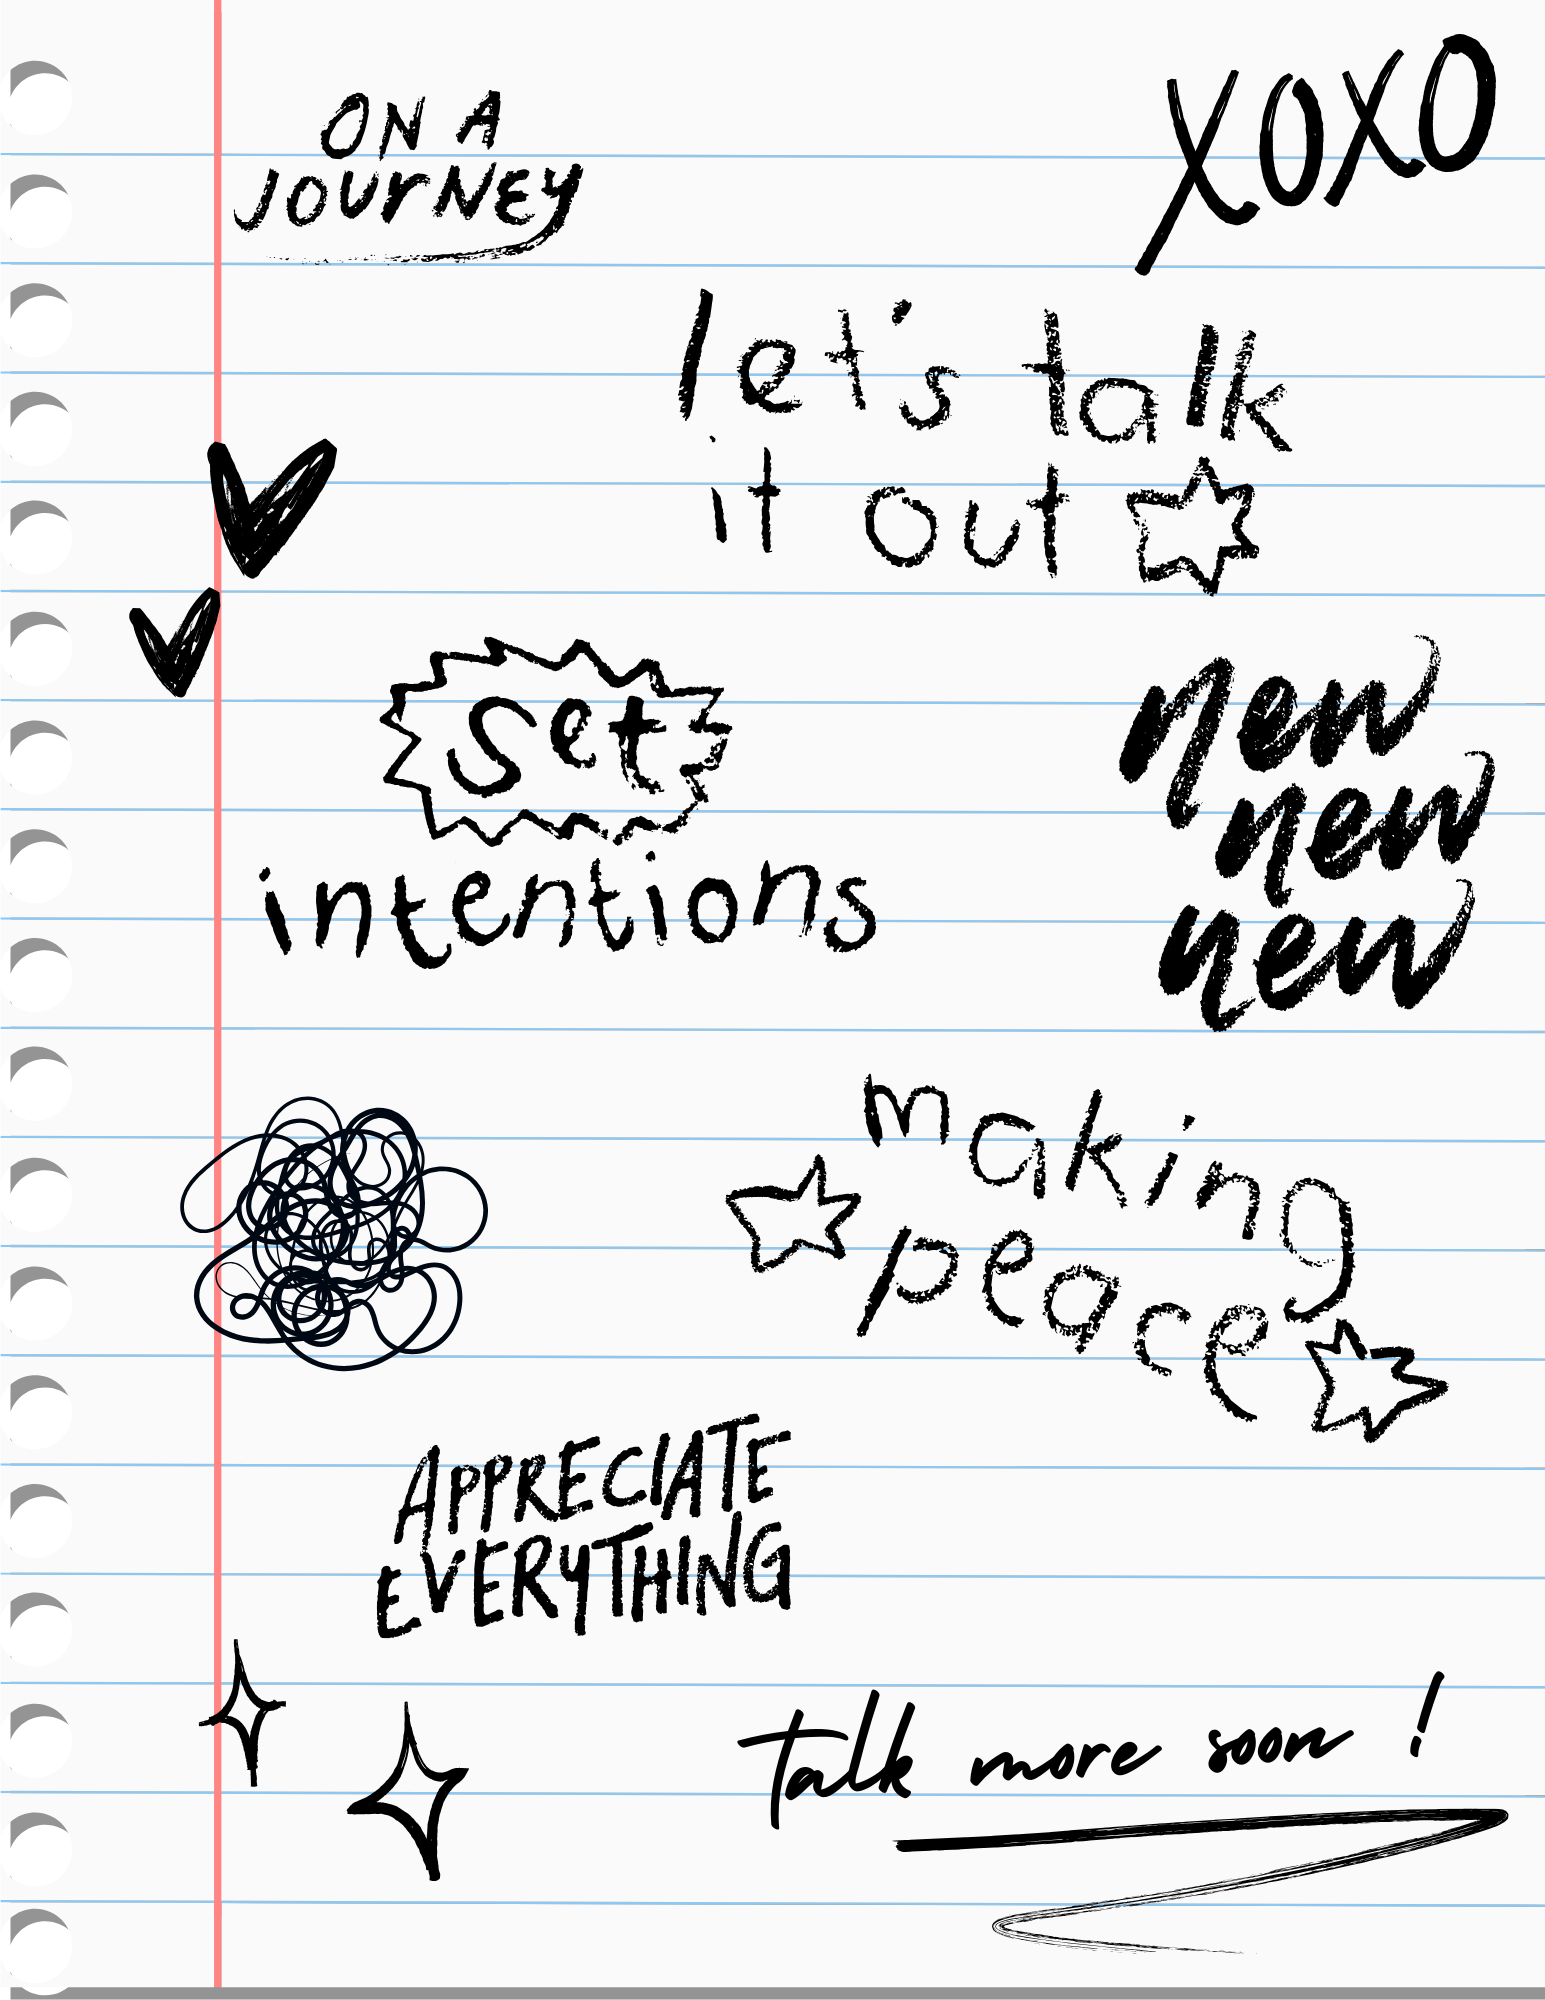 ON A
JOURNEY
XOXO
let's talk
it out
set
intentions
new
new
new
making
peace
APPRECIATE
EVERYTHING
talk more soon!